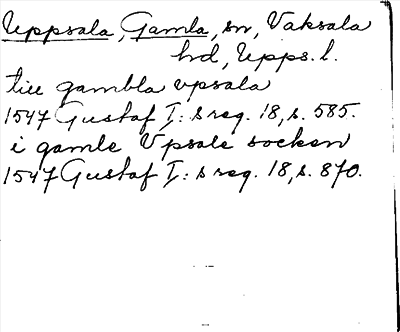 Uppsala, Gamla, sn, Vaksala
hd, Upps. l.
till gambla vpsala
1547 Gustaf I: s reg. 18, s. 585.
i gamle Vpsale socken
1547 Gustaf I: s reg. 18, s. 870.